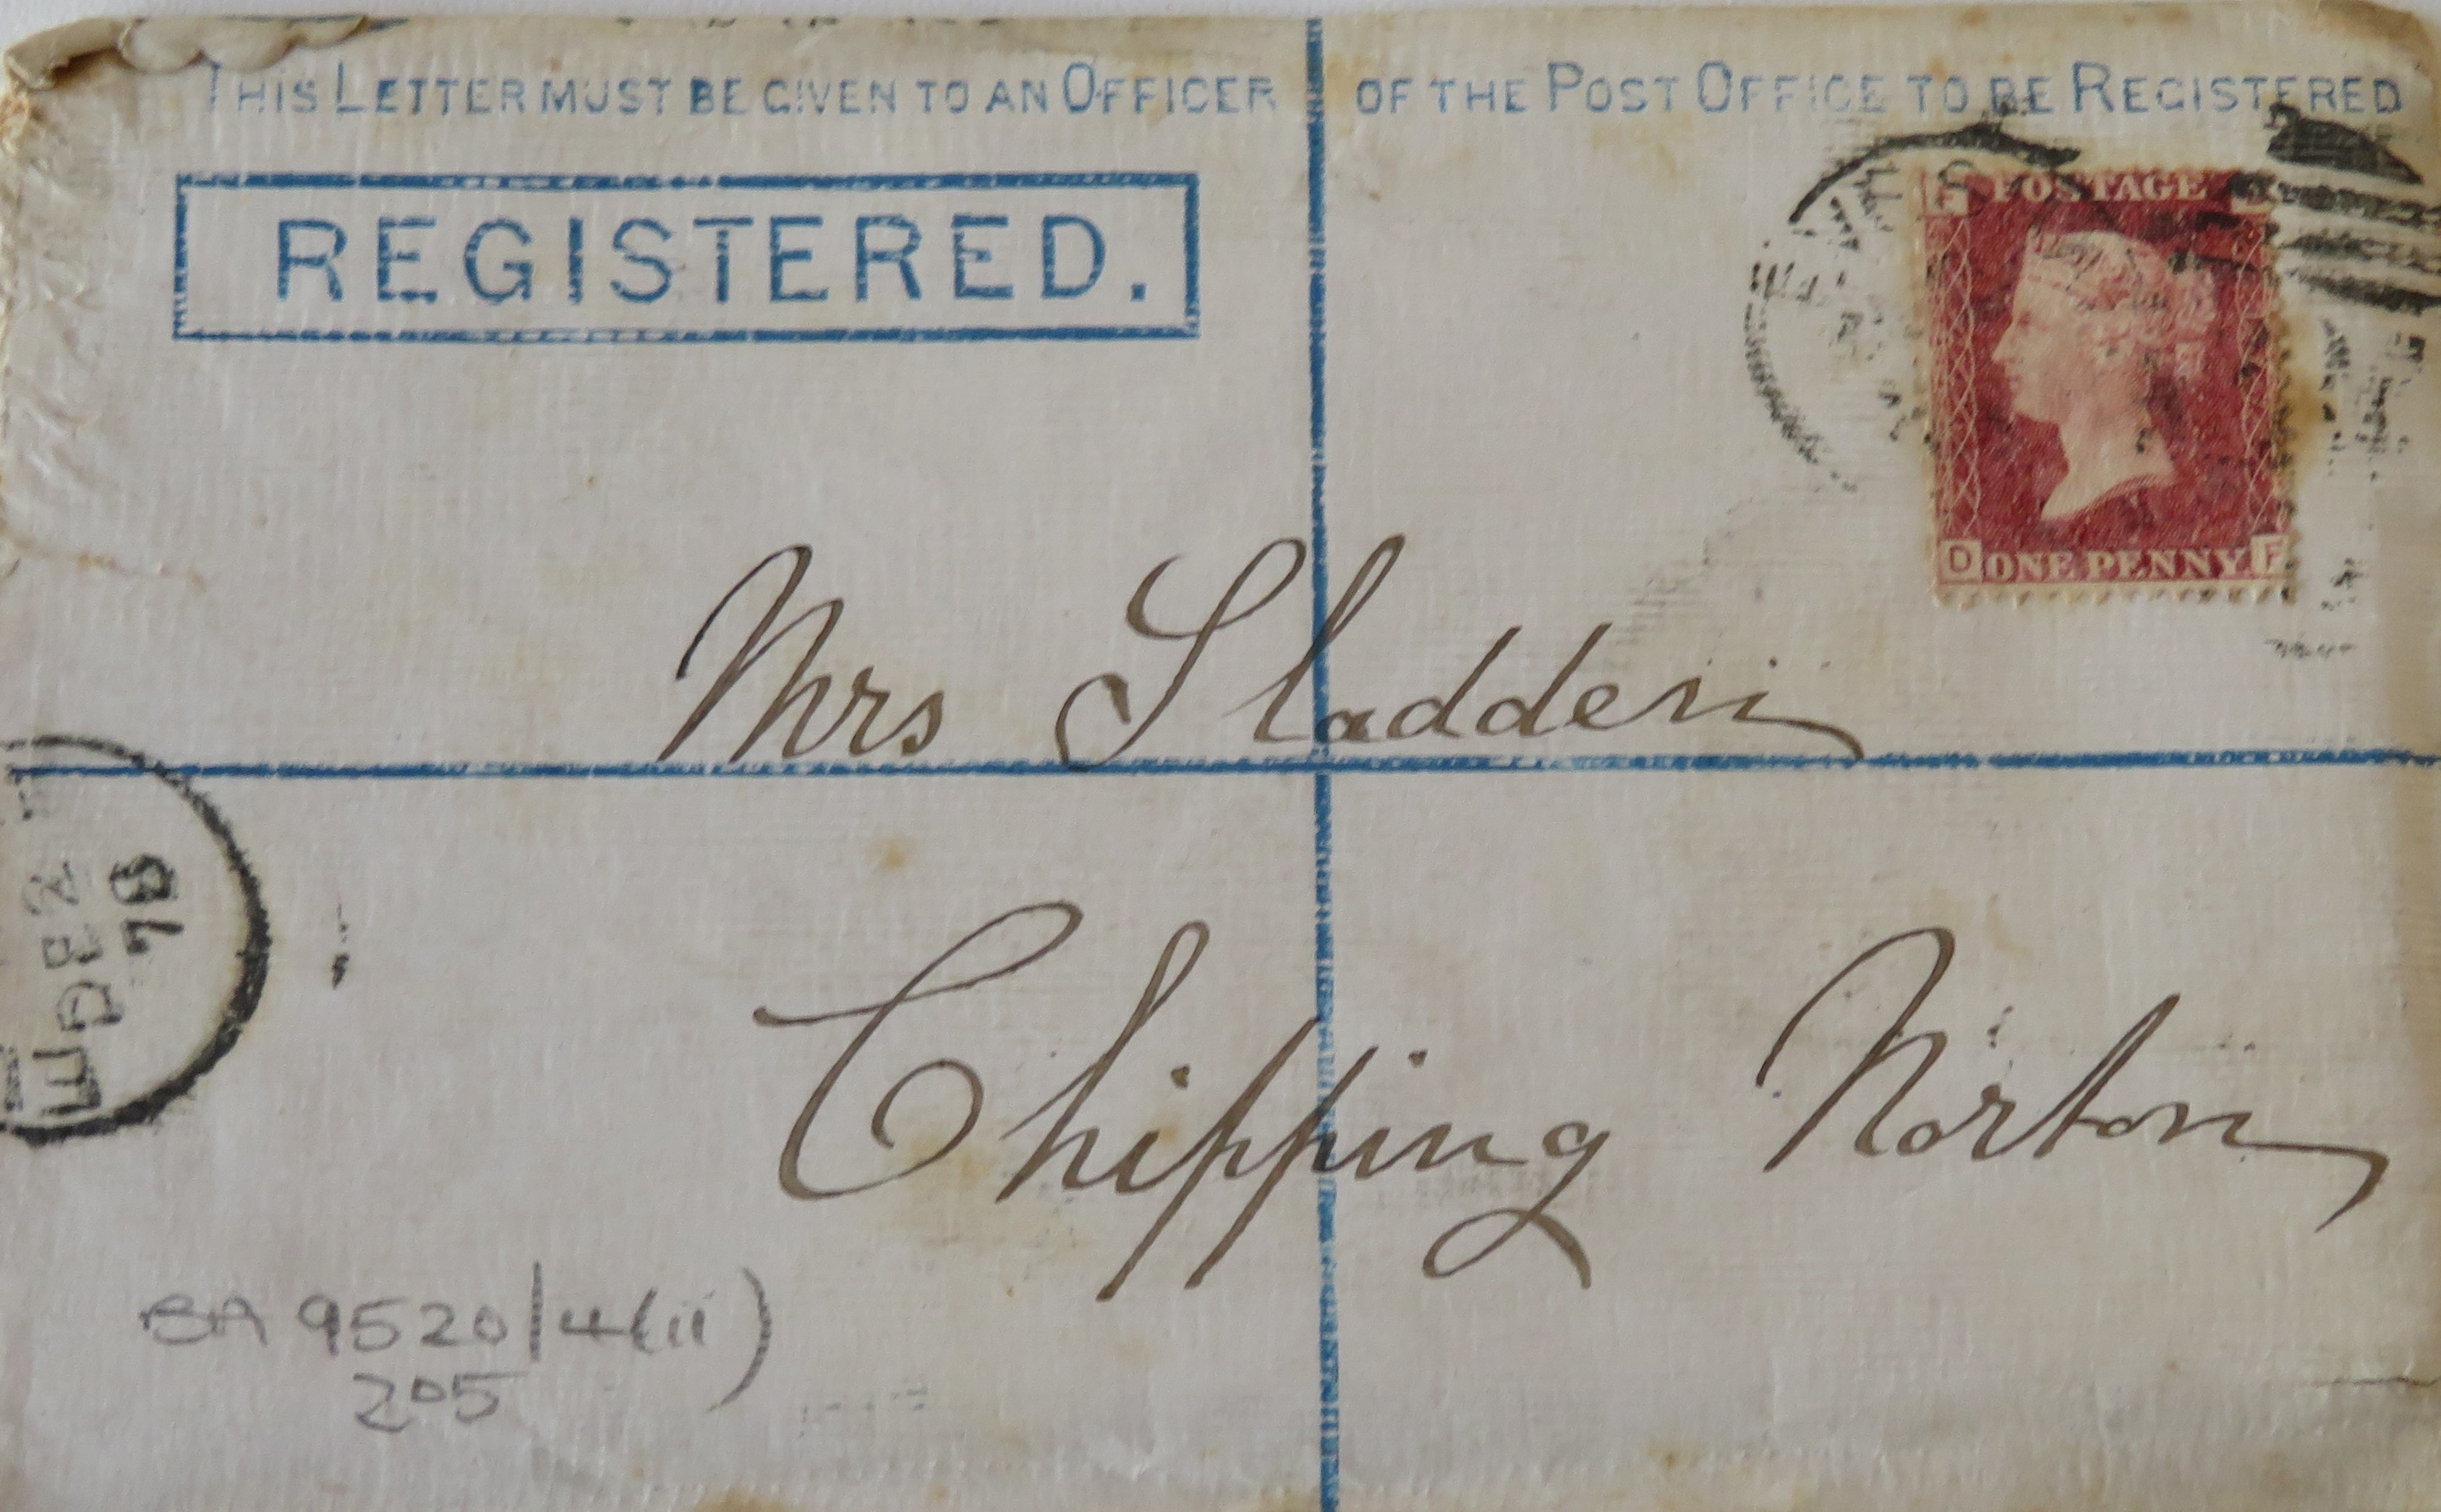 THIS LETTER MUST BE GIVEN TO AN OFFICER OF THE POST OFFICE TO BE REGISTERED
REGISTERED.
F POSTAGE
D ONE PENNY F
Mrs Sladden
78
Chipping Norton
BA 9520/4(ii)
205